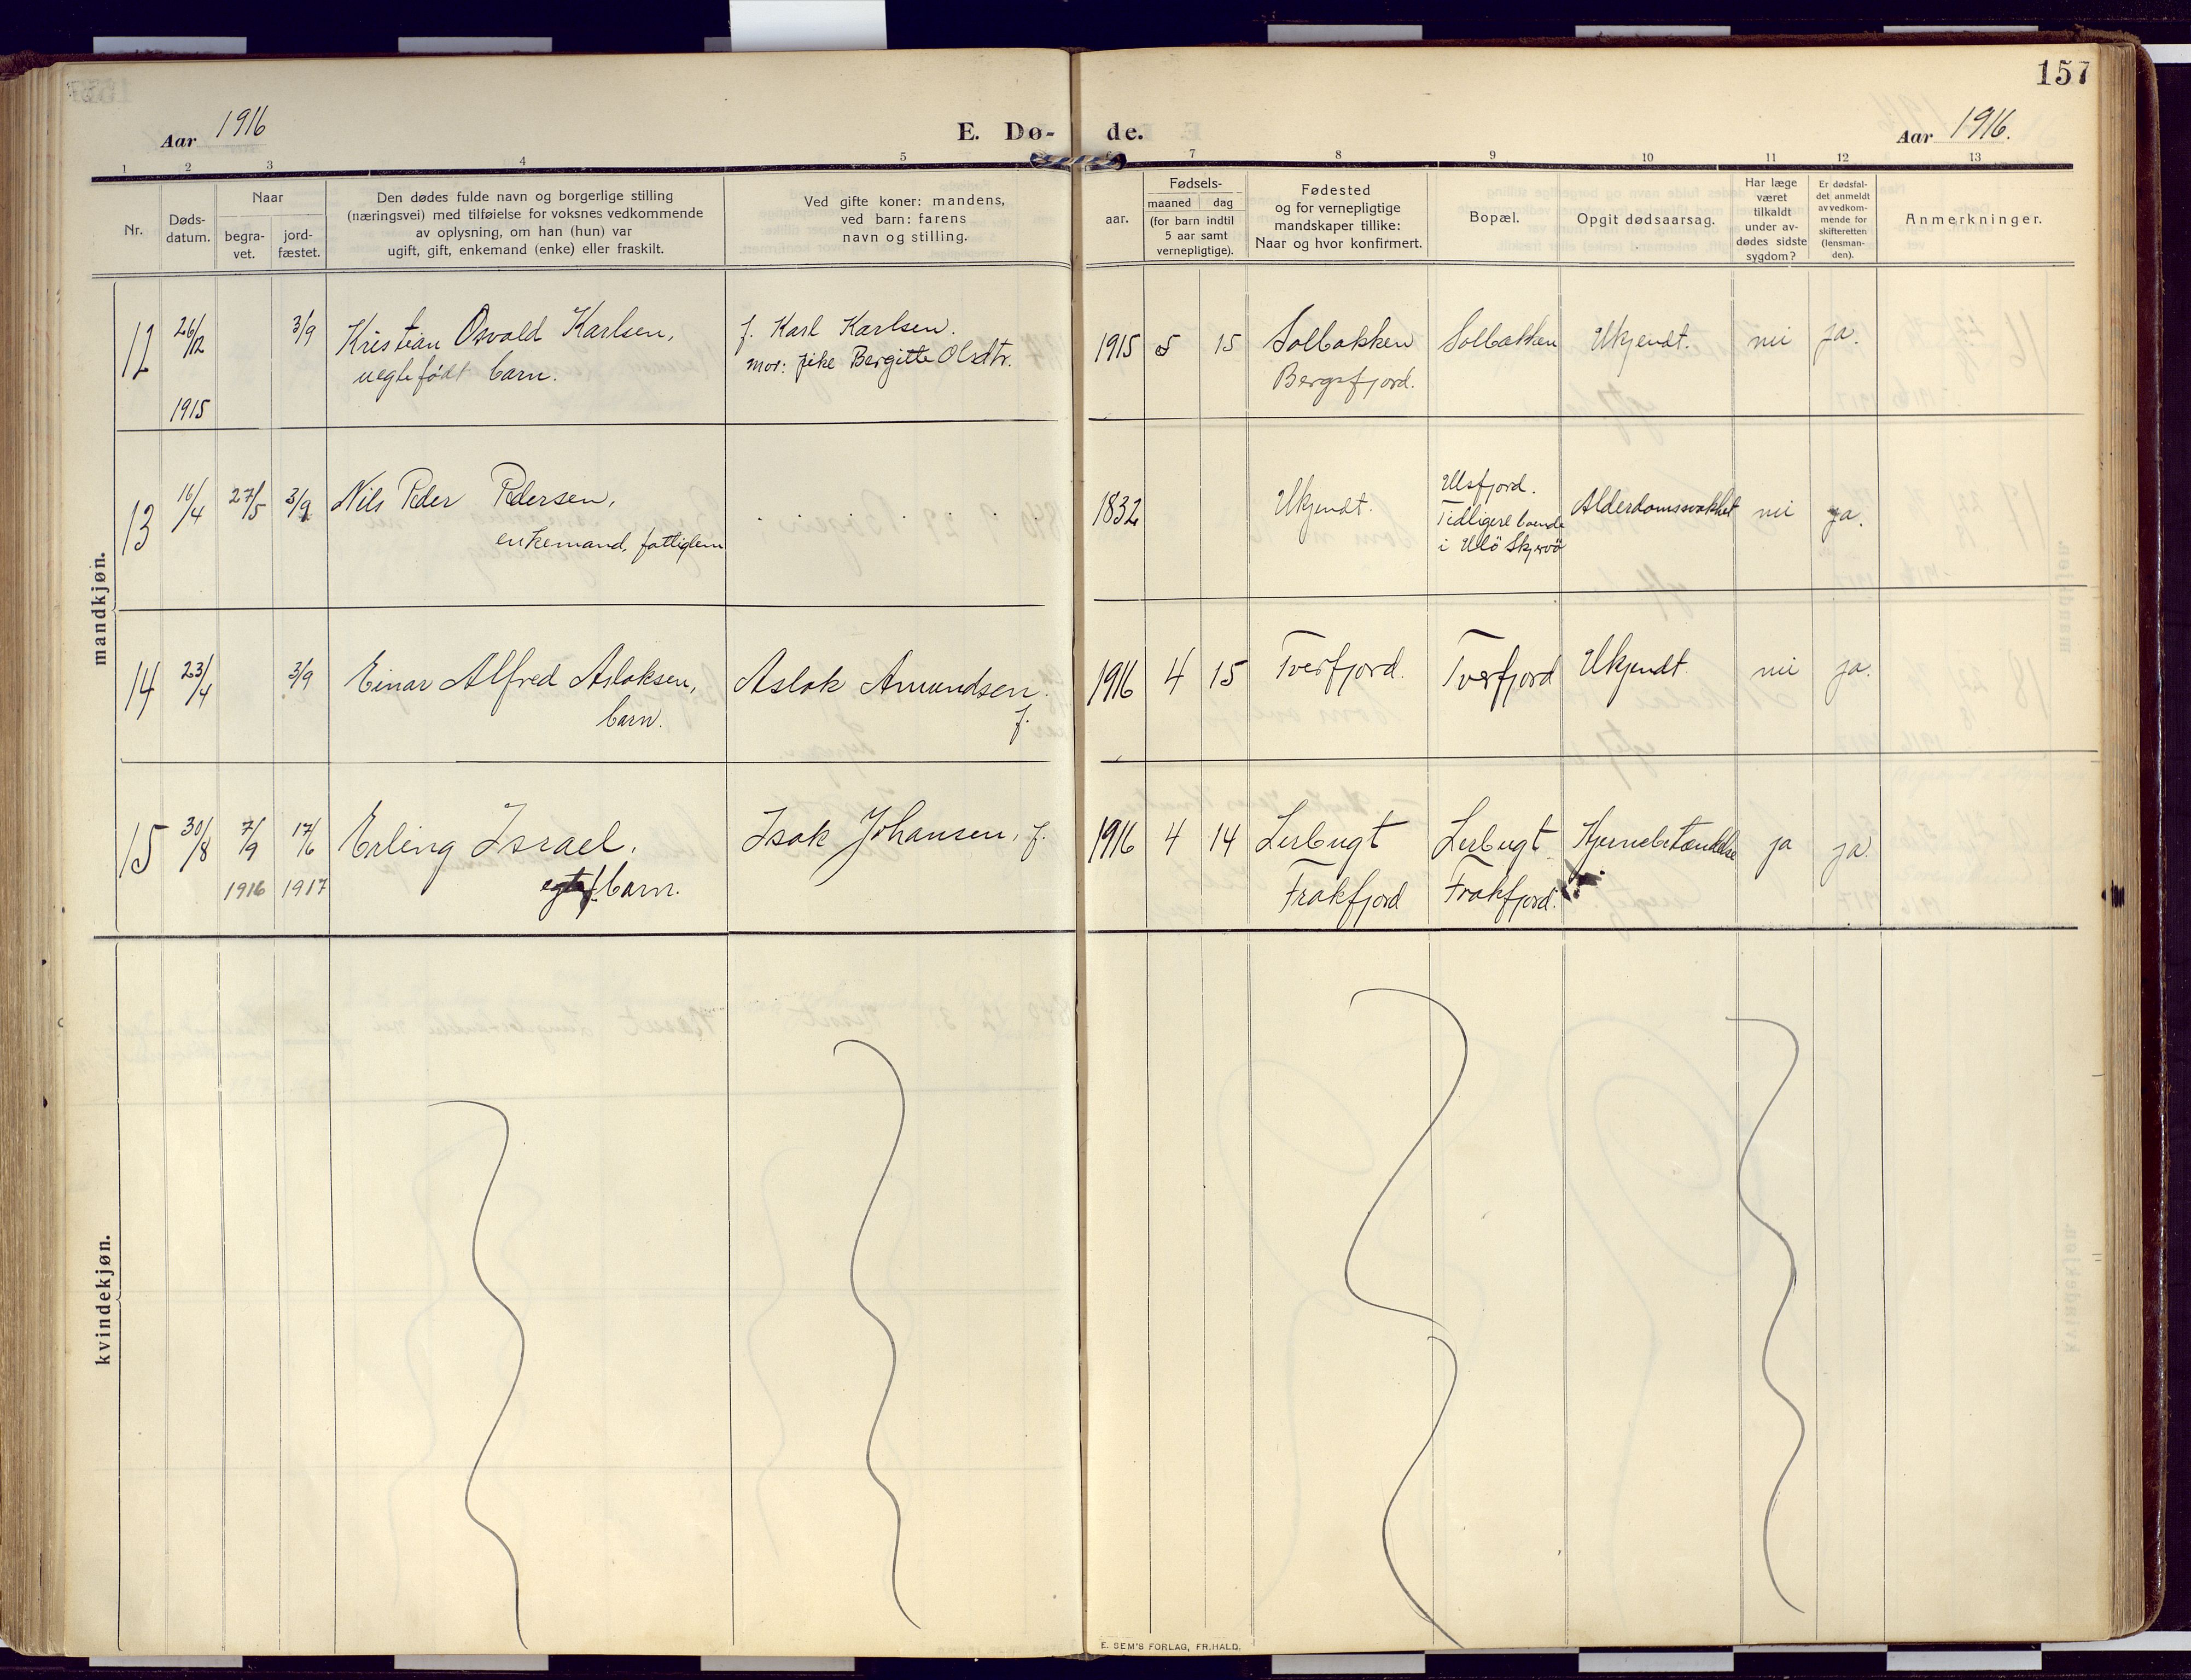 157
Aar 1916
E. Dø-
de.
Aar 1916.
1 2 3 4 5 6 7 8 9 10 11 12 13
Nr.
Døds-
datum.
Naar
begra-
vet.
jord-
fæstet.
Den dødes fulde navn og borgerlige stilling
(næringsvei) med tilføielse for voksnes vedkommende
av oplysning, om han (hun) var
ugift, gift, enkemand (enke) eller fraskilt.
Ved gifte koner: mandens,
ved barn: farens
navn og stilling.
Fødsels-
aar.
maaned dag
(for barn indtil
5 aar samt
vernepligtige).
Fødested
og for vernepligtige
mandskaper tillike:
Naar og hvor konfirmert.
Bopæl.
Opgit dødsaarsag.
Har læge
været
tilkaldt
under av-
dødes sidste
sygdom?
Er dødsfal-
det anmeldt
av vedkom-
mende for
skifteretten
(lensman-
den).
Anmerkninger.
mandkjøn.
12 26/12 3/9 Kristian Osvald Karlsen, f. Karl Karlsen. 1915 5 15 Solbakken Solbakken Ukjendt. nei ja.
uegtefødt barn. mor: Bergitte Olsdtr. Bergsfjord.
1915
13 16/4 27/5 3/9 Nils Peder Pedersen, 1832 Ukjendt. Ulsfjord. Alderdomssvakhet nei ja.
enkemand, fattiglem Tidligere boende
i Ulö Skjervö
14 23/4 3/9 Einar Alfred Aslaksen, Aslak Amundsen. 1916 4 15 Tverfjord. Tverfjord Ukjendt. nei ja.
barn. f.
15 30/8 7/9 17/6 Erling Israel, Isak Johansen, f. 1916 4 14 Lerbugt Lerbugt Hjernebetændelse ja ja.
1916 1917 egtef. barn. Frakfjord Frakfjord.
kvindekjøn.
E. SEM'S FORLAG, FR.HALD.